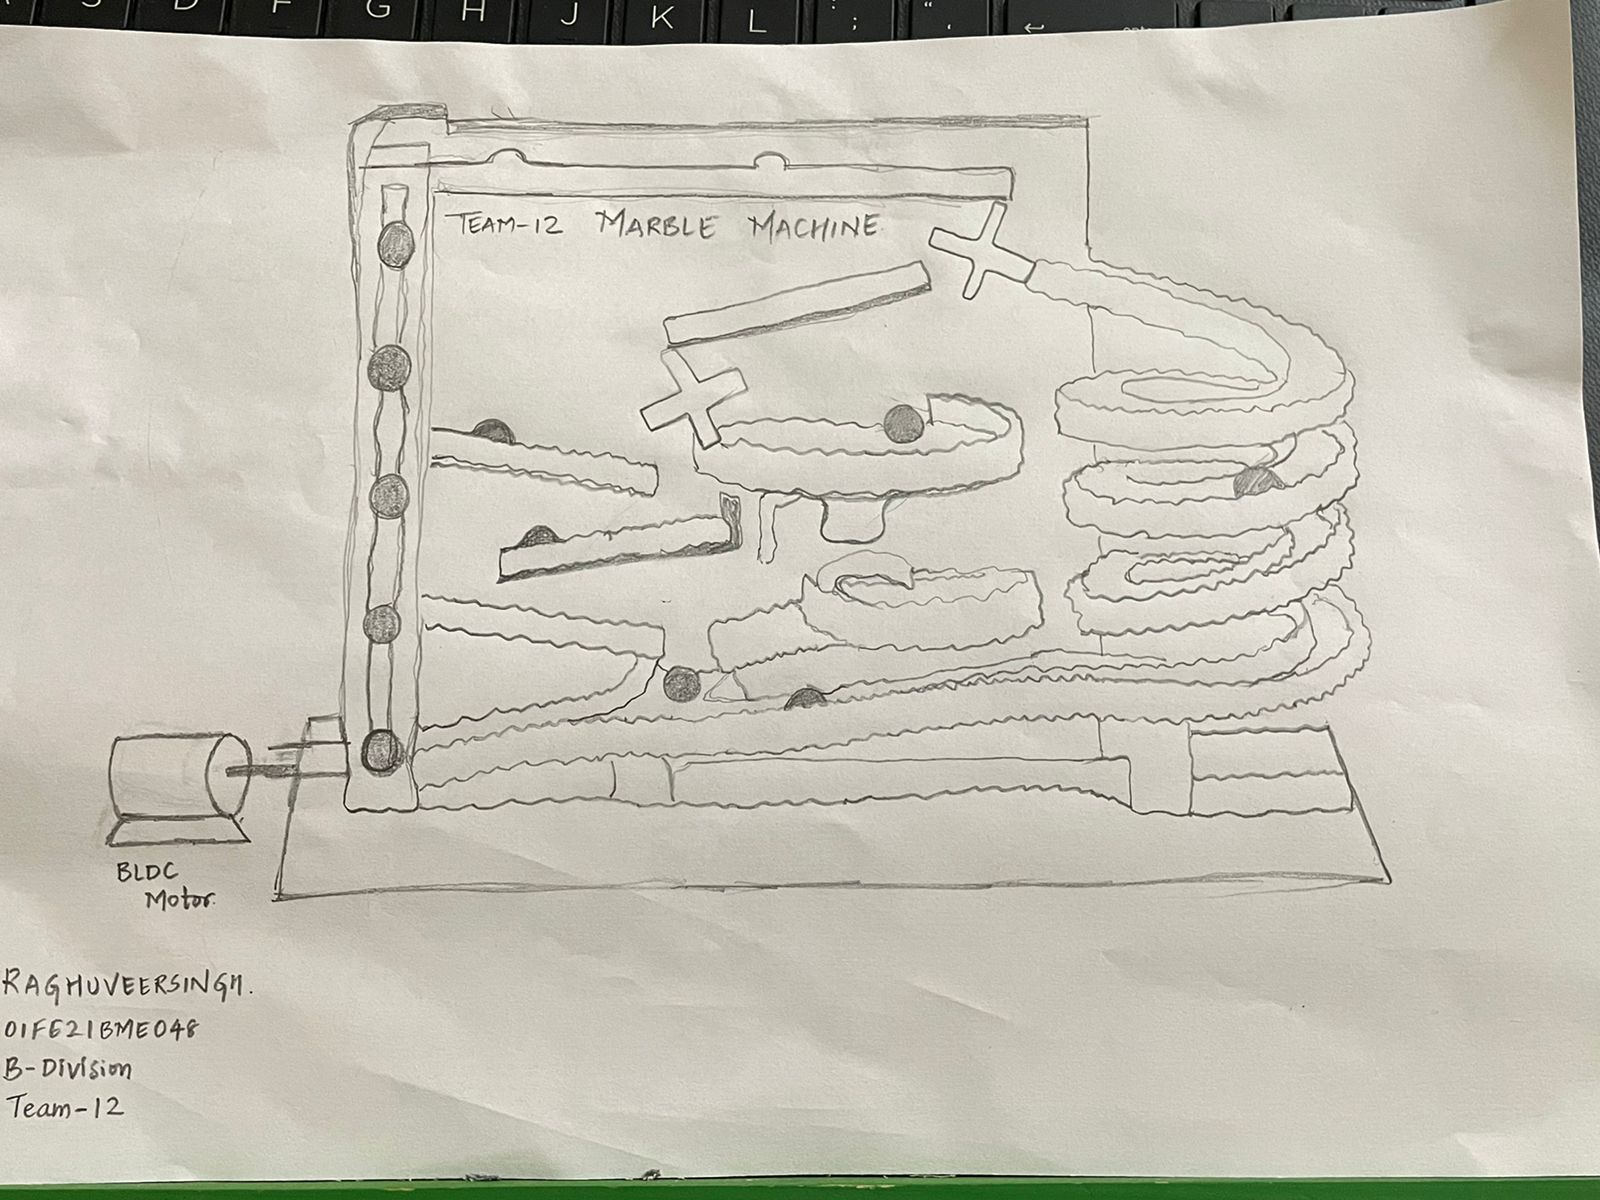 A S D F G H J K L : ; " ,
TEAM-12 MARBLE MACHINE
BLDC
Motor.
RAGHUVEERSINGH.
01FE21BME048
B-Division
Team-12